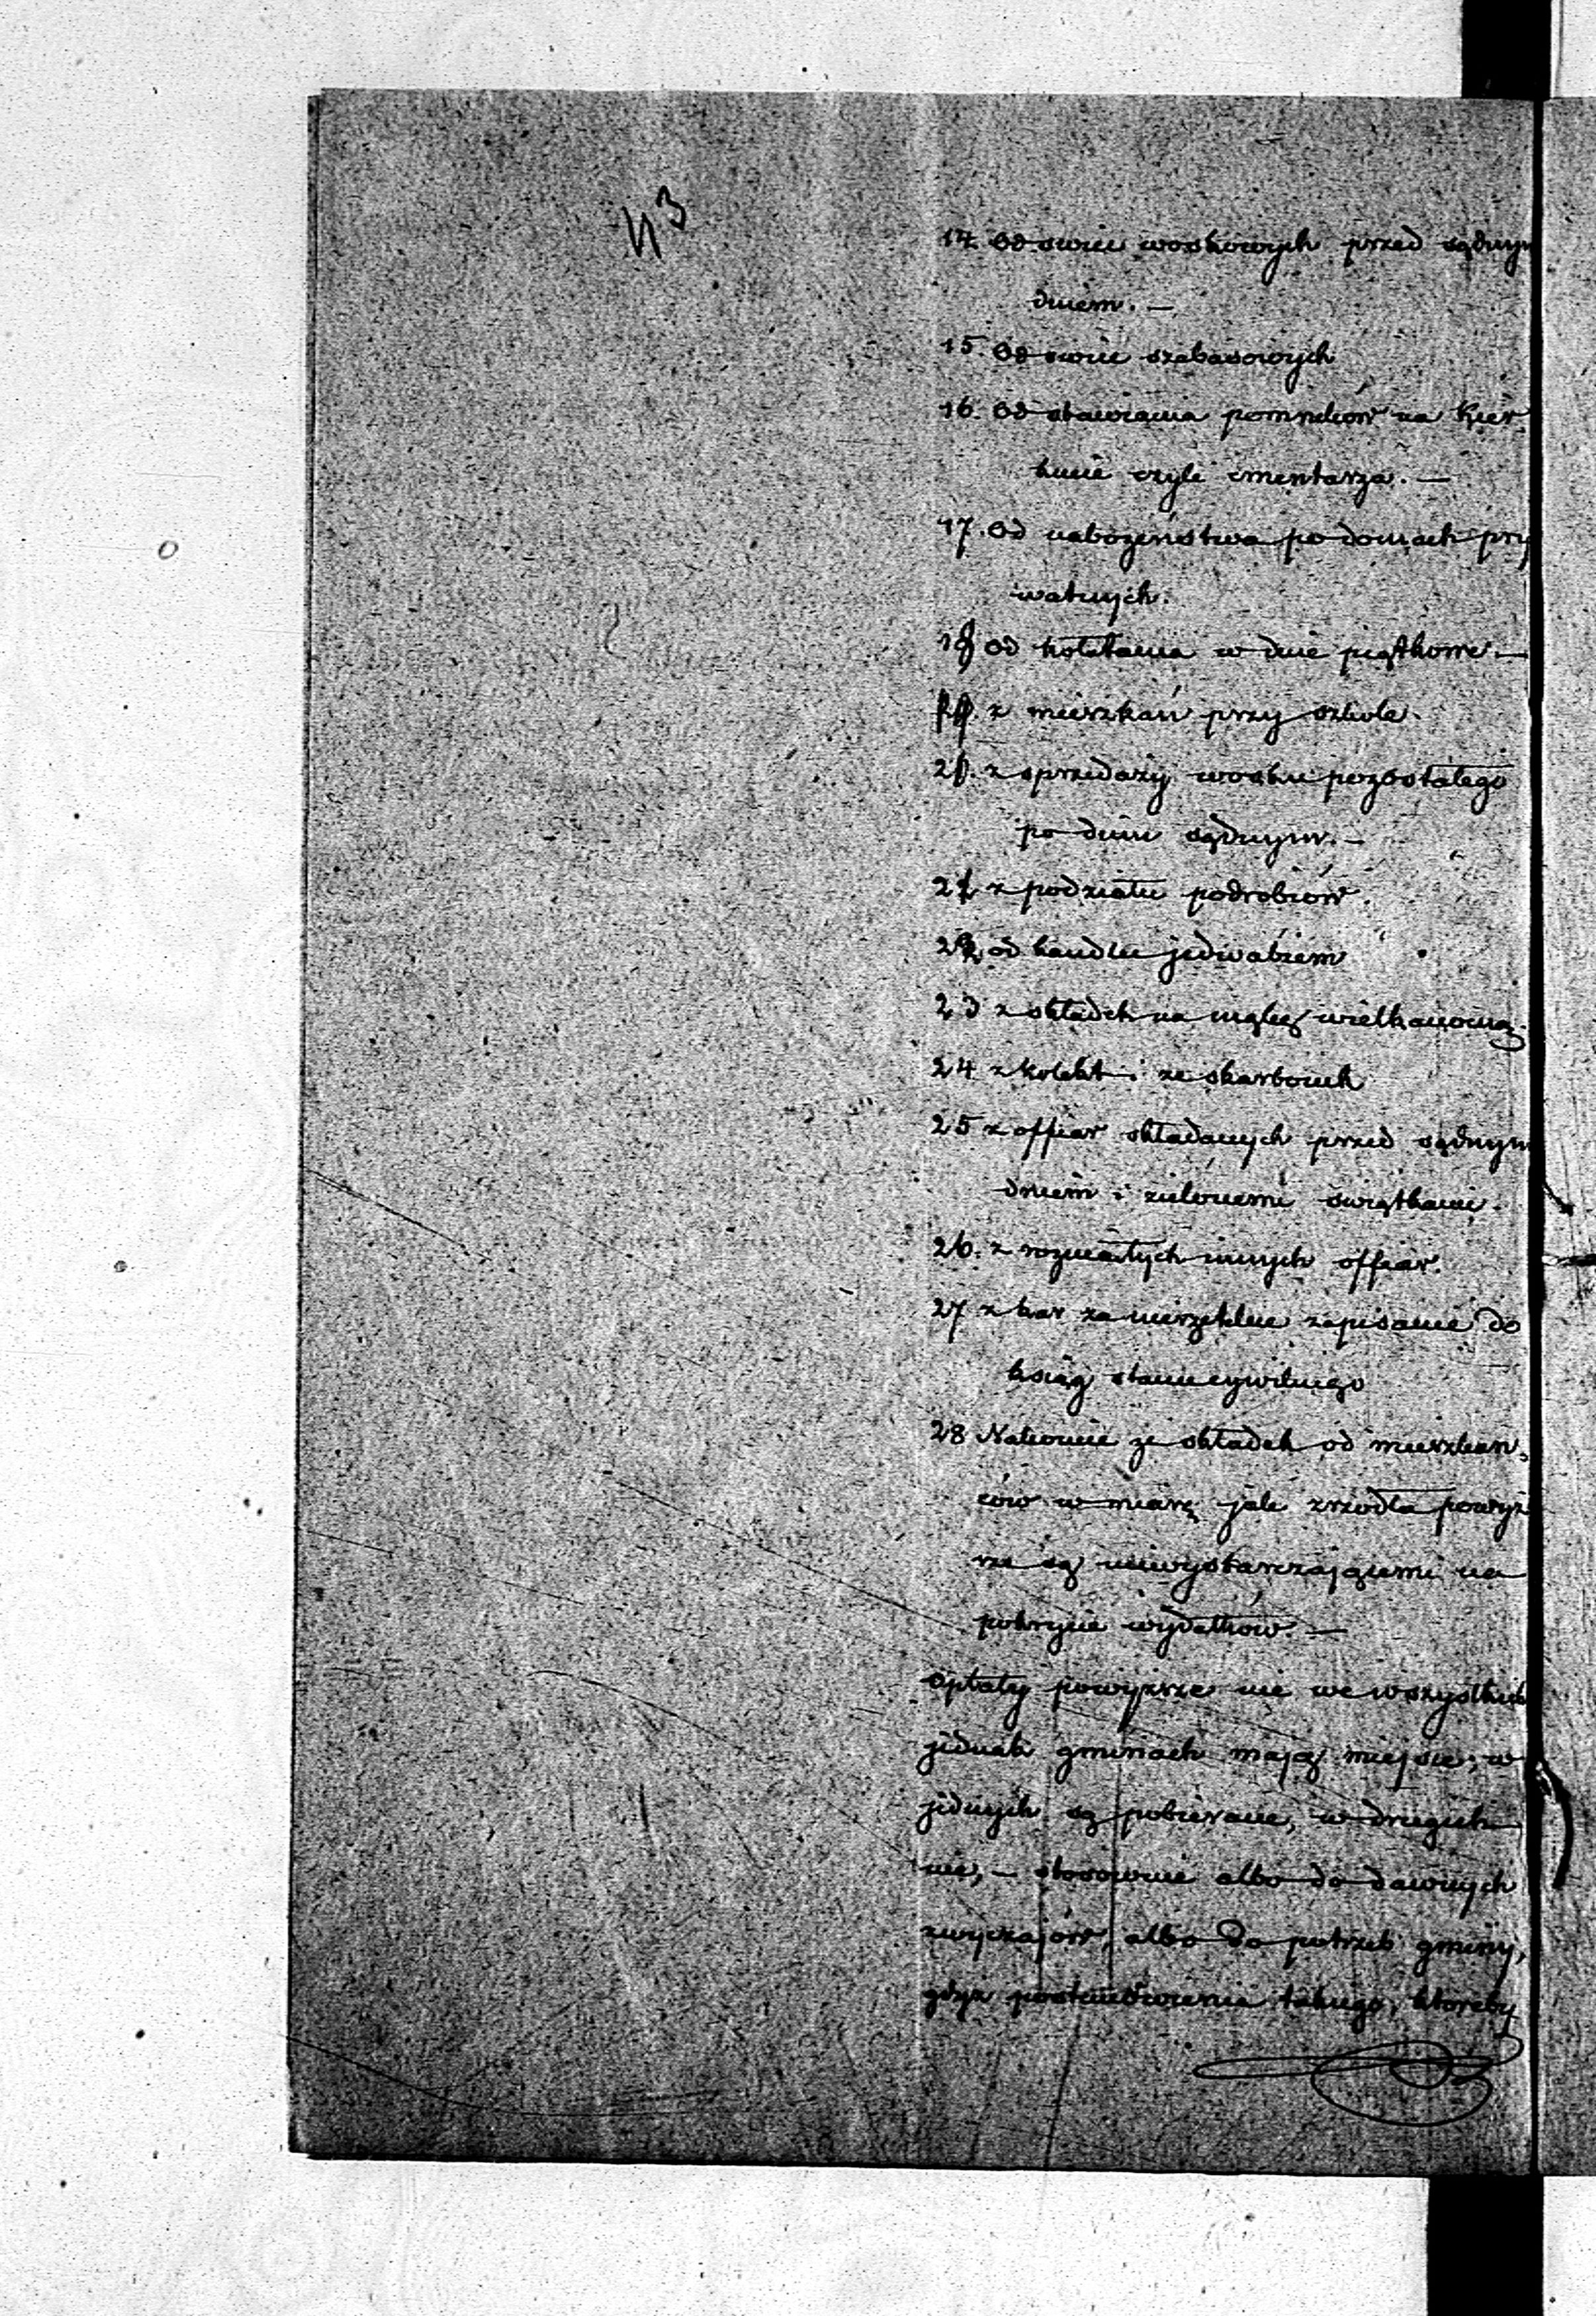 43
14. Od swiec woskowych przed sądnym
dniem. —
15 Od swiec szabasowych
16. Od stawiania pomników na Kier
kucie czyli cmentarza. —
17. Od nabożeństwa po domach pry
watnych.
18 Od kołatania w dnie piątkowe. —
19. z mieszkań przy szkole.
20. z sprzedaży wosku pozostałego
po dniu sądnym. —
21 z podziału podrobiów.
22 od handlu jedwabiem
23 z składek na mąkę wielkanocną.
24 z kolekt i ze skarbonek
25 z offiar składanych przed sądnym
dniem i zielonemi świątkami.
26. z rozmaitych innych offiar.
27 z kar za nierzetelne zapisanie do
ksiąg stanu cywilnego
28 Nakonie ze składek od mieszkań,
ców w miarę jak zrzodła powyż
sze są niewystarczającemi na
pokrycie wydatków. —
Opłaty powyższe nie we wszystkich
jednak gminach mają miejsce; w
jednych są pobierane, w drugich
nie, — stosownie albo do dawnych
zwyczajów, albo do potrzeb gminy,
gdyż postanowienia takiego, któreby